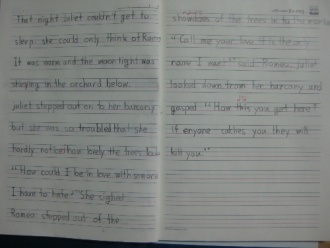 That night Joliet couldn't get to
sleep she could only think of Rome
It was warm and the moon light was
shining in the orchard below.
juliet stepped out on to her bancony
but she was so troubled that she
hardly notice how lovely the trees
"How could I be in love with someone
I have to hate?" She sighed
Romeo stepped out of the
shawdows of the trees in to the
"Call me your love it is the
name I want" said Romeo. juliet
looked down from her barcony and
gasped. "How this you got here?
if enyone catches you, they will
kill you."